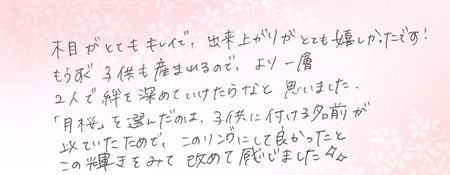 木目がとてもキレイで、出来上がりがとても嬉しかったです!
もうすぐ子供も産まれるので、より一層
2人で絆を深めていけたらなと思いました。
「月桜」を選んだのは、子供に付ける名前が
似ていたためで、このリングにして良かったと
この輝きをみて改めて感じました☆☆